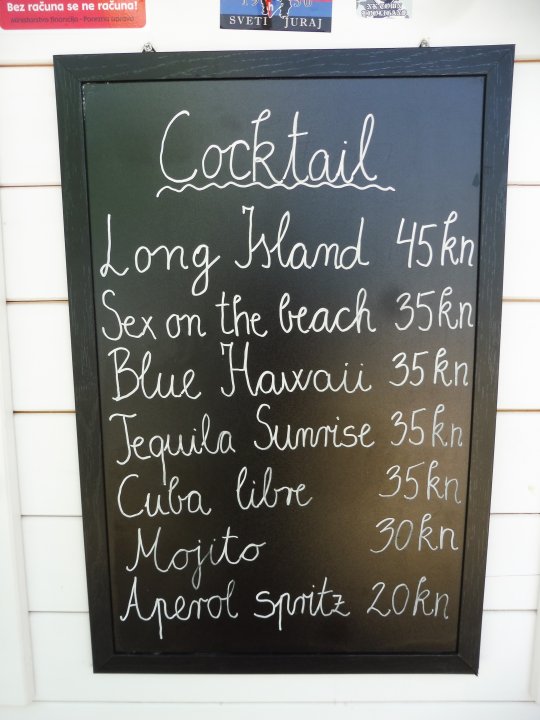 Bez računa se ne računa!
Ministarstvo financija - Porezna uprava
SVETI JURAJ
Cocktail
Long Island 45kn
Sex on the beach 35kn
Blue Hawaii 35kn
Tequila Sunrise 35kn
Cuba libre 35kn
Mojito 30kn
Aperol spritz 20kn